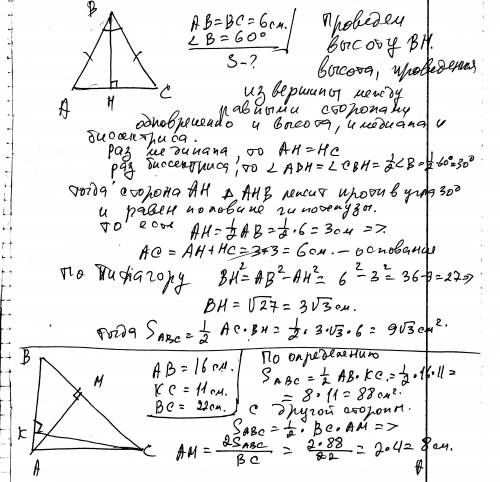 B
A H C
AB = BC = 6 см.
∠B = 60°
S - ?
Проведем
высоту BH.
высота, проведенная
из вершины между
равными сторонами
одновременно и высота, и медиана и
биссектриса.
Раз медиана, то AH = HC
раз биссектриса, то ∠ABH = ∠CBH = 1/2 ∠B = 1/2·60° = 30°
тогда сторона AH △ AHB лежит против угла 30°
и равен половине гипотенузы.
то есть AH = 1/2 AB = 1/2 · 6 = 3 см =>
AC = AH + HC = 3+3 = 6 см. – основание
По Пифагору BH² = AB² - AH² = 6² - 3² = 36-9 = 27 =>
BH = √27 = 3√3 см.
тогда S ABC = 1/2 AC · BH = 1/2 · 3·√3·6 = 9√3 см².
B
M
K
A C
AB = 16 см.
KC = 11 см.
BC = 22 см.
По определению
S ABC = 1/2 AB · KC = 1/2 · 16·11 =
= 8·11 = 88 см².
с другой стороны.
S ABC = 1/2 · BC · AM =>
AM = 2S ABC / BC = 2·88 / 22 = 2·4 = 8 см.